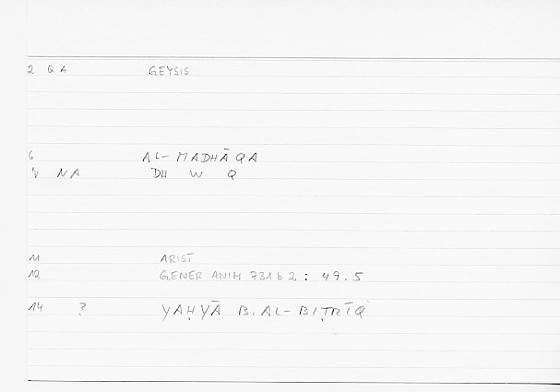 2 QA GEYSIS
6 AL-MADHĀQA
NA DH W Q
11 ARIST
12 GENER ANIM 731b2: 49.5
14 ? YAḤYĀ B. AL-BIṬRĪQ